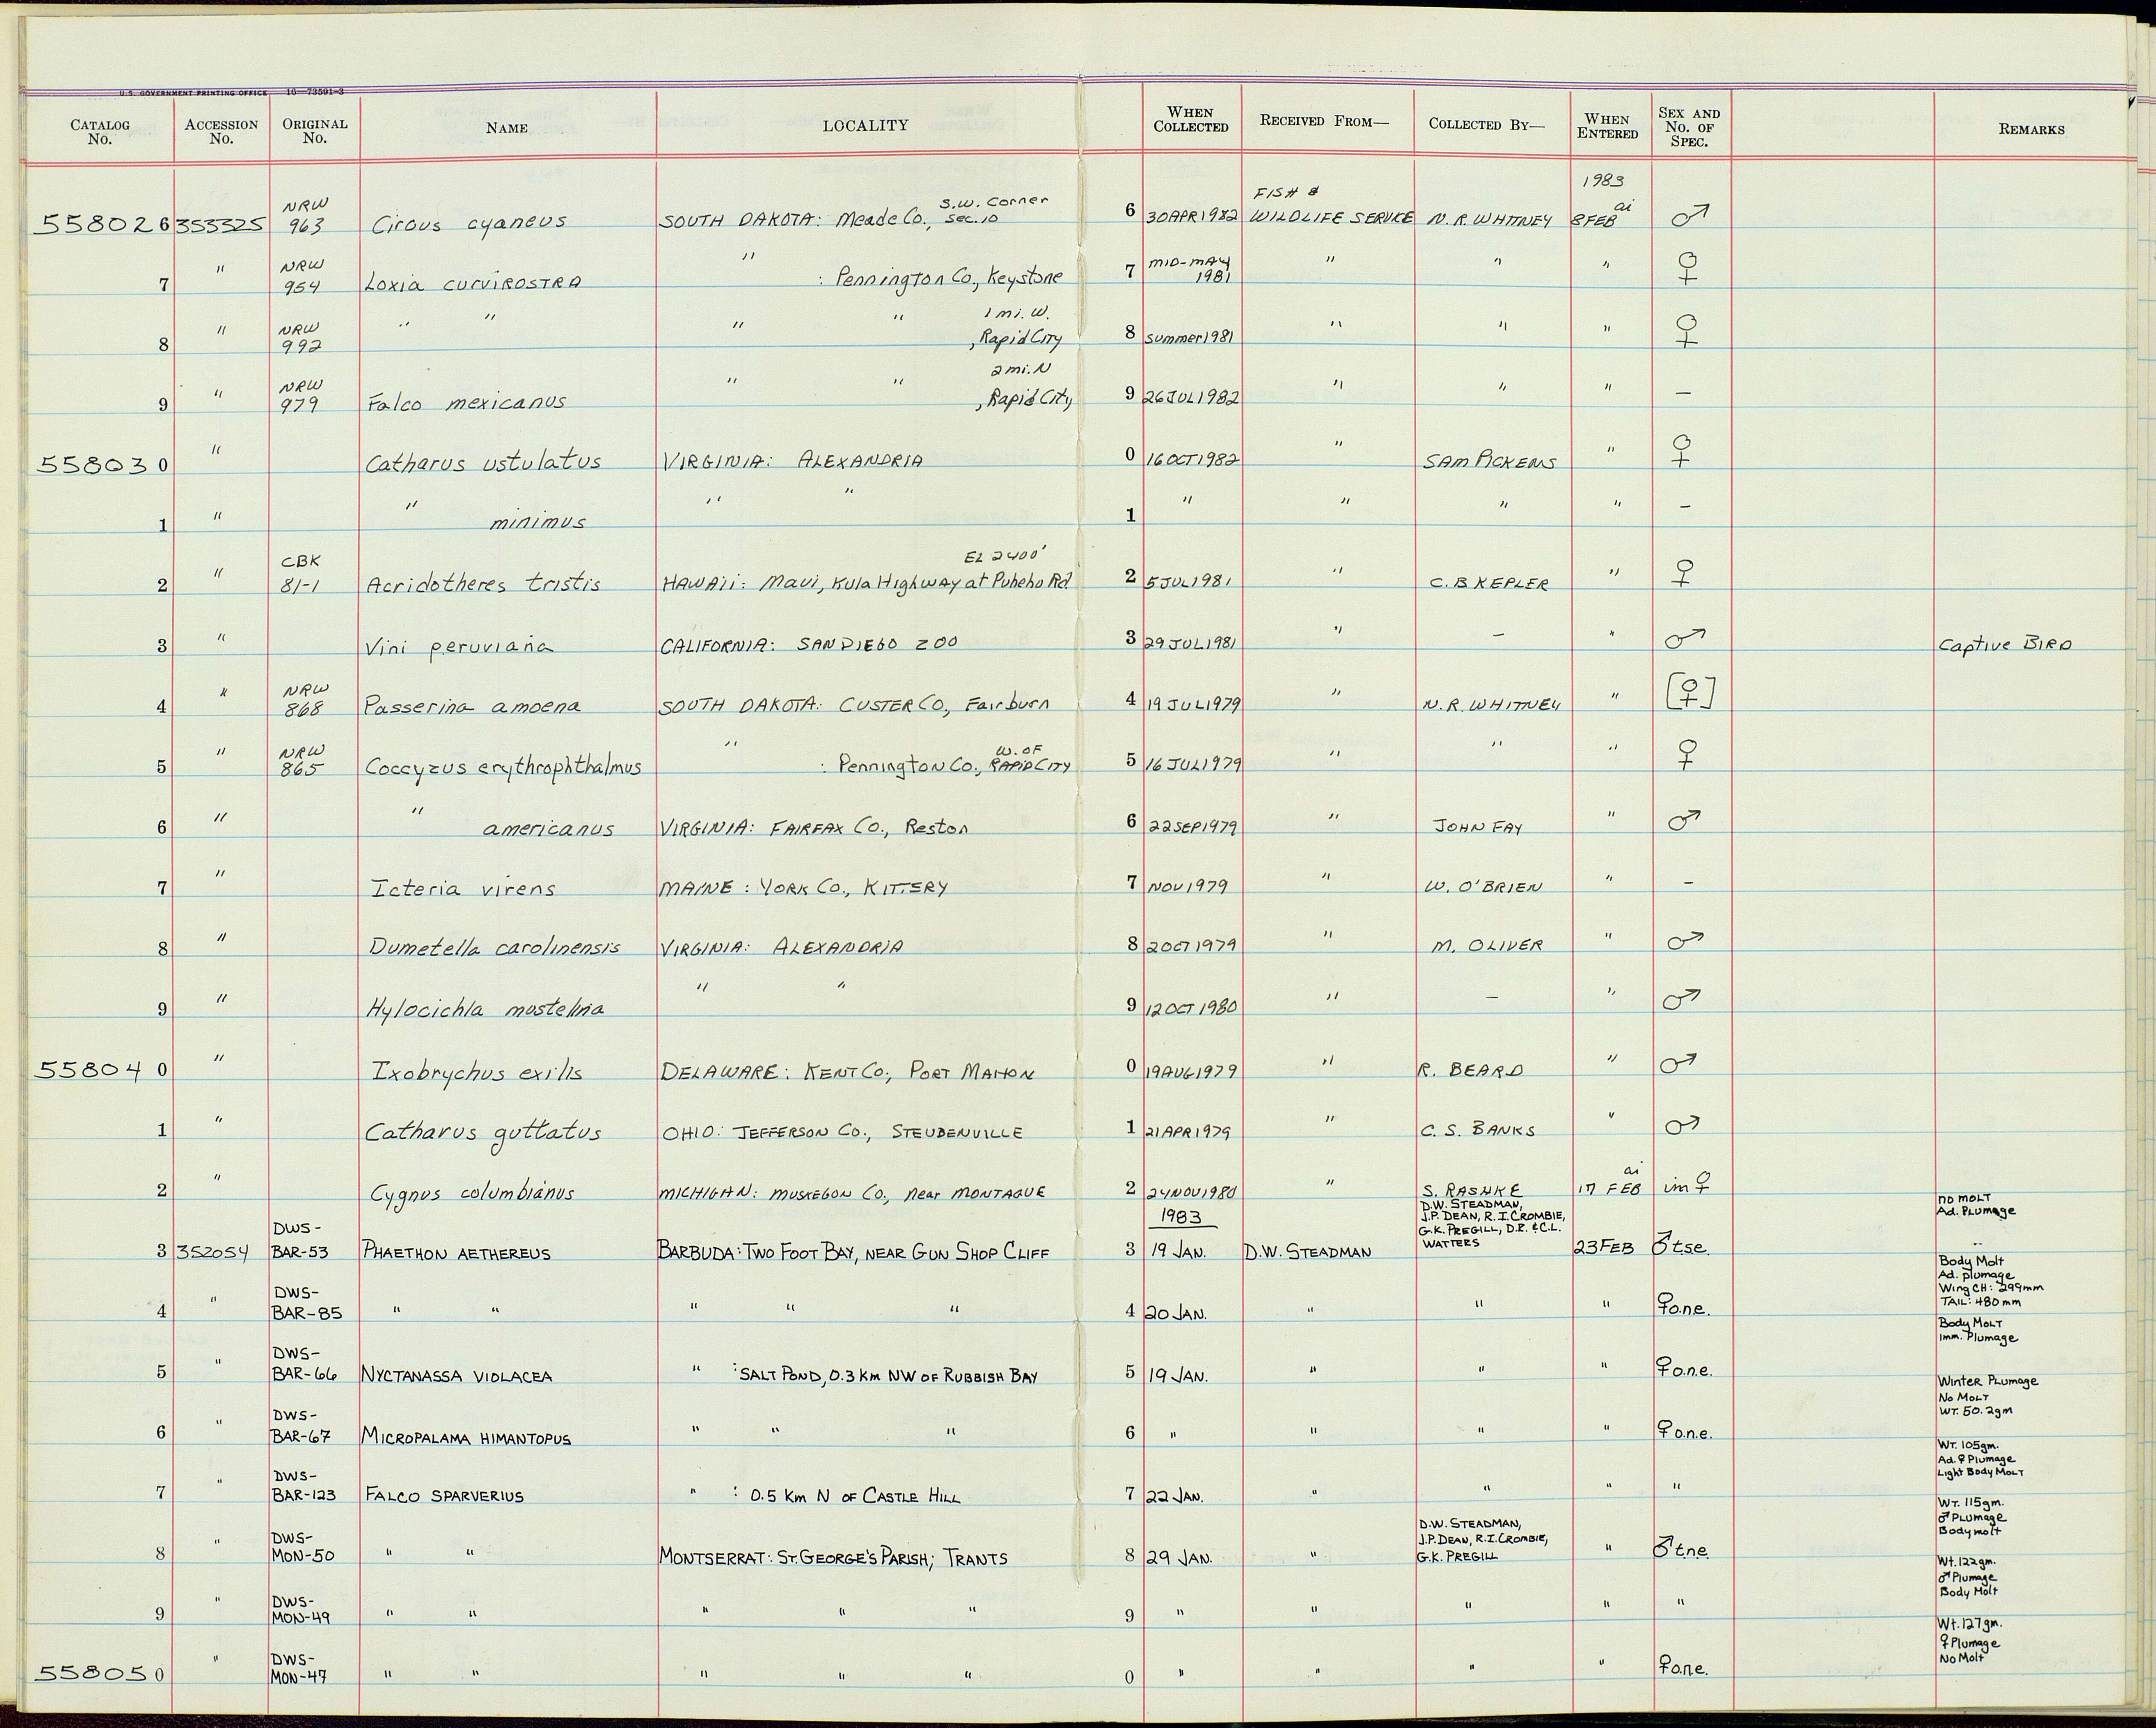 U.S. GOVERNMENT PRINTING OFFICE 16—73591-3
CATALOG No. ACCESSION No. ORIGINAL No. NAME LOCALITY WHEN COLLECTED RECEIVED FROM— COLLECTED BY— WHEN ENTERED SEX AND No. OF SPEC. REMARKS
1983
NRW S.W. Corner FISH & ai
558026 353325 963 Circus cyaneus SOUTH DAKOTA: Meade Co., Sec.10 6 30APR1982 WILDLIFE SERVICE N.R. WHITNEY 8FEB ♂
7 " NRW 954 Loxia curvirostra " : Pennington Co., Keystone 7 MID-MAY 1981 " " " ♀
8 " NRW 992 " " " " 1 mi. W. , Rapid City 8 summer1981 " " " ♀
9 " NRW 979 Falco mexicanus " " 2 mi. N , Rapid City 9 26JUL1982 " " " –
558030 " Catharus ustulatus VIRGINIA: ALEXANDRIA 0 16OCT1982 " SAM PICKENS " ♀
1 " " minimus " " 1 " " " " –
2 " CBK 81-1 Acridotheres tristis HAWAii: Maui, Kula Highway at Puheho Rd. El 2400' 2 5JUL1981 " C.B KEPLER " ♀
3 " Vini peruviana CALIFORNIA: SAN DIEGO ZOO 3 29JUL1981 " – " ♂ Captive BIRD
4 " NRW 868 Passerina amoena SOUTH DAKOTA: CUSTER CO., Fairburn 4 19JUL1979 " N.R. WHITNEY " [♀]
5 " NRW 865 Coccyzus erythrophthalmus " : Pennington Co., W. OF RAPID CITY 5 16JUL1979 " " " ♀
6 " " americanus VIRGINIA: FAIRFAX Co., Reston 6 22SEP1979 " JOHN FAY " ♂
7 " Icteria virens MAINE: YORK Co., KITTERY 7 NOV1979 " W. O'BRIEN " –
8 " Dumetella carolinensis VIRGINIA: ALEXANDRIA 8 2OCT1979 " M. OLIVER " ♂
9 " Hylocichla mustelina " " 9 12OCT1980 " – " ♂
558040 " Ixobrychus exilis DELAWARE: KENT Co., PORT MAHON 0 19AUG1979 " R. BEARD " ♂
1 " Catharus guttatus OHIO: JEFFERSON Co., STEUBENVILLE 1 21APR1979 " C.S. BANKS " ♂
2 " Cygnus columbianus MICHIGAN: MUSKEGON Co., near MONTAGUE 2 24NOV1980 " S. RASHKE ai 17 FEB im ♀
1983
3 352054 DWS-BAR-53 PHAETHON AETHEREUS BARBUDA: TWO FOOT BAY, NEAR GUN SHOP CLIFF 3 19 JAN. D.W. STEADMAN D.W. STEADMAN, J.P. DEAN, R.I. CROMBIE, G.K. PREGILL, D.R. & C.L. WATTERS 23FEB ♂tse. no MOLT Ad. PLumage
4 " DWS-BAR-85 " " " " " 4 20 JAN. " " " ♀one. Body Molt Ad. plumage Wing CH: 299mm TAIL: 480mm
5 " DWS-BAR-66 NYCTANASSA VIOLACEA " : SALT POND, 0.3 Km NW OF RUBBISH BAY 5 19 JAN. " " " ♀o.n.e. Body MOLT Imm. Plumage
6 " DWS-BAR-67 MICROPALAMA HIMANTOPUS " " " 6 " " " " ♀o.n.e. Winter PLumage No MOLT WT. 50.2gm
7 " DWS-BAR-123 FALCO SPARVERIUS " : 0.5 Km N OF CASTLE HILL 7 22 JAN. " " " " WT. 105gm. Ad. ♀ Plumage Light Body MOLT
8 " DWS-MON-50 " " MONTSERRAT: ST. GEORGE'S PARISH; TRANTS 8 29 JAN. " D.W. STEADMAN, J.P. DEAN, R.I. CROMBIE, G.K. PREGILL " ♂t.n.e. WT. 115gm. ♂ PLumage Body molt
9 " DWS-MON-49 " " " " " 9 " " " " " Wt. 122gm. ♂ Plumage Body Molt
558050 " DWS-MON-47 " " " " " 0 " " " " ♀o.n.e. Wt. 127gm. ♀ Plumage No Molt